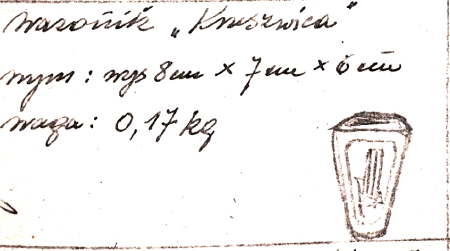 wazonik „Kruszwica"
wym : wys 8cm x 7cm x 6cm
waga : 0,17 kg